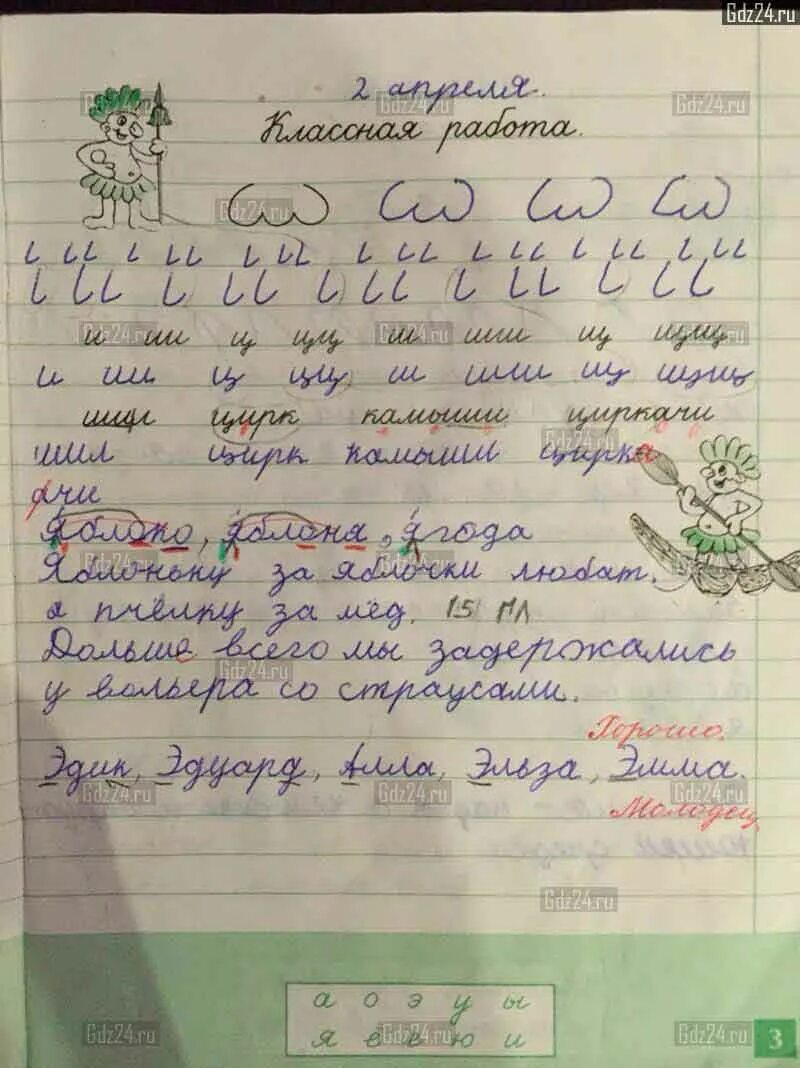 Gdz24.ru
2 апреля.
Классная работа.
и ии ц цц ш шш щ щщ
и ии ц цц ш шш щ щщ
шил цирк камыши циркачи
шил цирк камыши цирка
чи
Яблоко, яблоня, ягода
Яблоньку за яблочки любят.
а пчёлку за мёд. 15 мл
Дольше всего мы задержались
у вольера со страусами.
Хорошо.
Эдик, Эдуард, Алла, Эльза, Эмма.
Молодец
а о э у ы
я ё е ю и
3